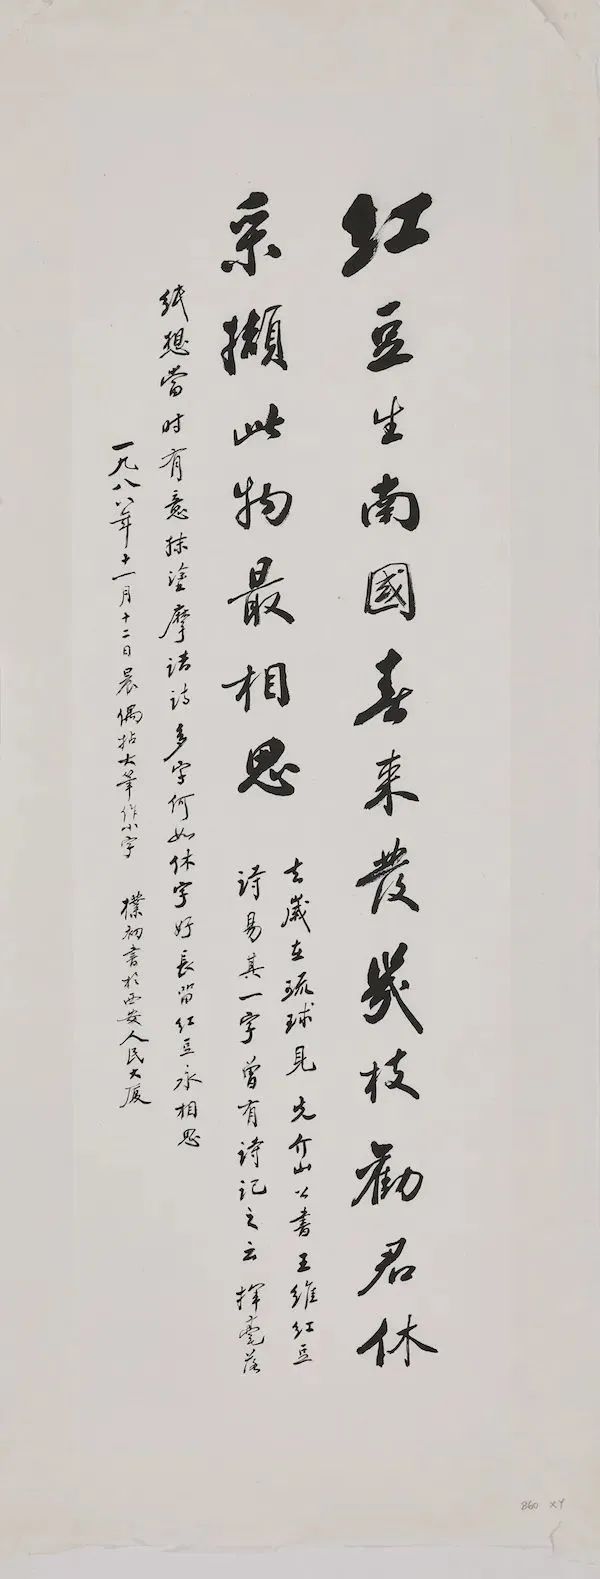 红豆生南國春来發幾枝勸君休
采擷此物最相思
去歲在琉球見先介山公書王維红豆
詩易其一字曾有詩記之云揮毫落
纸想當时有意抹塗摩诘詩多字何如休字好長留红豆永相思
一九八八年十一月十二日晨偶拈大筆作小字 樸初書於西安人民大厦
860 XY